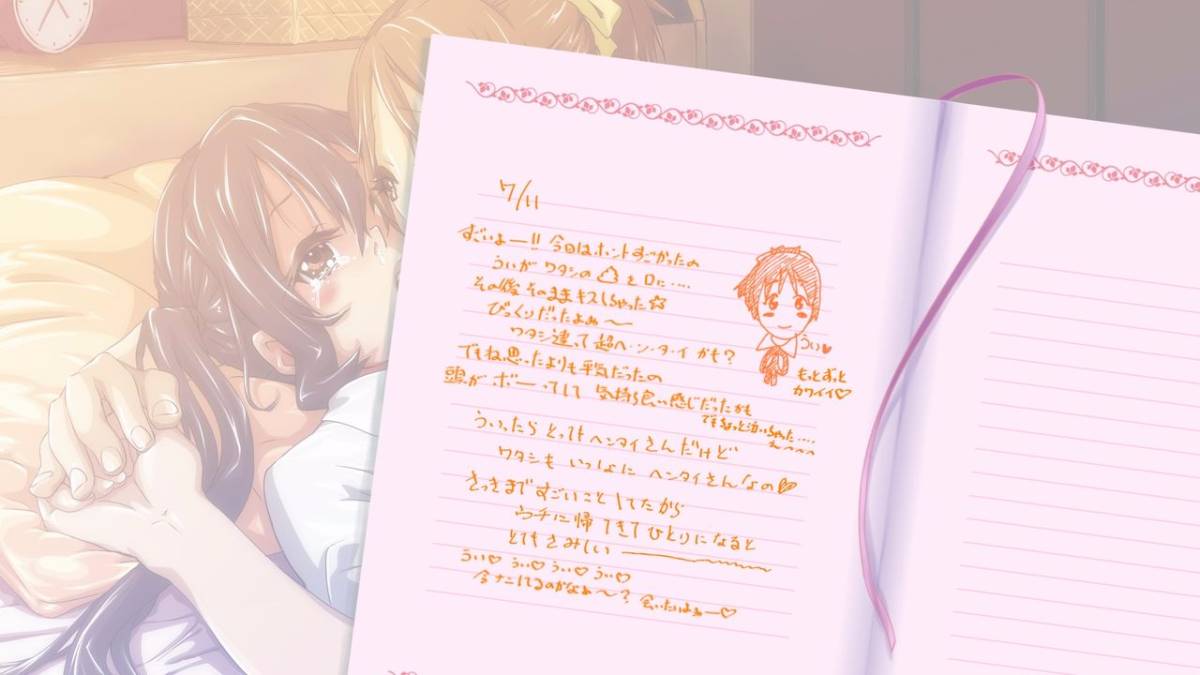 7/11
すごいよー!! 今日はホントすごかったの
ういが ワタシの を口に‥‥
その後 そのままキスしちゃった☆
びっくりだったよぉ～
ワタシ達って超ヘ・ン・タ・イ かも?
でもね思ったよりも平気だったの
頭が ボーってして 気持ち良い感じだったかも
でもちょっと泣いちゃった‥‥
えへへへ
ういったら とってもヘンタイさんだけど
ワタシも いっしょに ヘンタイさんなの♥
さっきまですごいことしてたから
ウチに帰ってきてひとりになると
とてもさみしい
うい♡ うい♡ うい♡ うい♡
今ナニしてるのかなぁ～? 会いたいよぉー♡
うい♥
もっとずっと
カワイイ♡